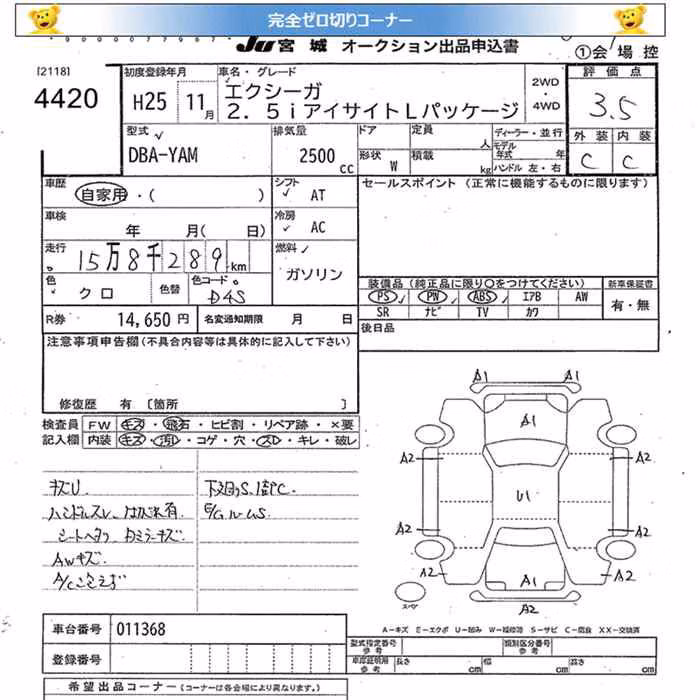 完全ゼロ切りコーナー
JU 宮城 オークション出品申込書
①会場控
[2118]
4420
初度登録年月
H25 11月
車名・グレード
エクシーガ
2.5iアイサイトLパッケージ
2WD
・
4WD
評価点
3.5
外装 内装
C C
型式
DBA-YAM
排気量
2500 cc
ドア
定員 人
ディーラー・並行
モデル年式 年
形状 W
積載 kg
ハンドル 左・右
車歴
自家用・( )
シフト
AT
セールスポイント (正常に機能するものに限ります)
車検
年 月( 日)
冷房
AC
走行
15万8千289km
燃料
ガソリン
色
クロ
色替
色コード
D4S
装備品(純正品に限り○をつけてください)
新車保証書
PS PW ABS エアB AW
有・無
SR ナビ TV カワ
R券
14,650円
名変通知期限 月 日
後日品
注意事項申告欄(不具合内容等は具体的に記入して下さい)
修復歴 有 〔箇所 〕
検査員
記入欄
FW キズ・飛石・ヒビ割・リペア跡・×要
内装 キズ・汚れ・コゲ・穴・スレ・キレ・破レ
キズU
下廻りS、
ハンドルスレ
シートヘタリ
AWキズ
A1 A1
A1
A2 A2
U1
A2 A2
A2 A1 A2
A2
スペア
A-キズ E-エクボ U-凹み W-補修跡 S-サビ C-腐食 XX-交換済
車台番号 011368
登録番号
型式指定番号
参考
類別区分番号
参考
車庫証明用
参考
長さ cm 幅 cm 高さ cm
希望出品コーナー(コーナーは各会場により異なります。)